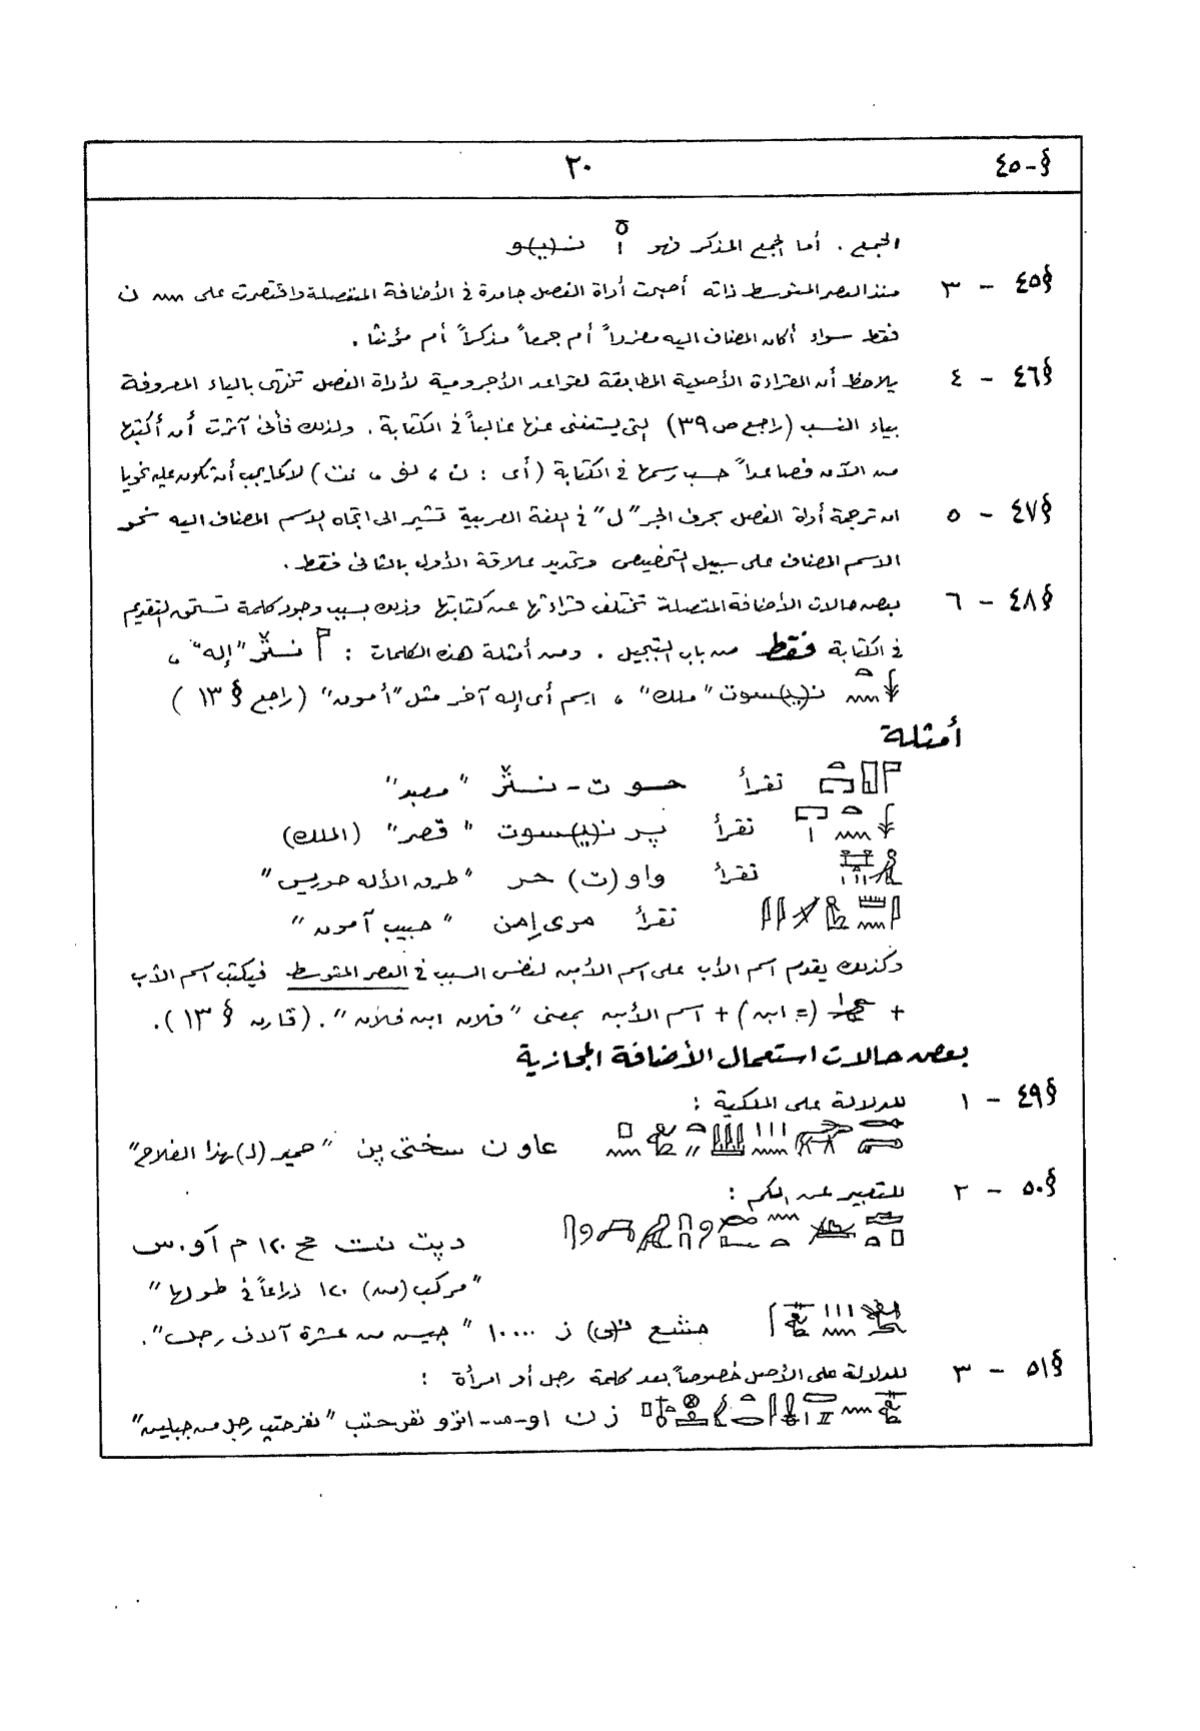 §-٤٥ ٢٠
الجمع . أما الجمع المذكر فهو ن(ي)و
§٤٥ - ٣ منذ العصر المتوسط ذاته أصبحت أداة الفصل جامدة في الأضافة المنفصلة واقتصرت على ن
فقط سواء أكان المضاف اليه مفرداً أم جمعاً مذكراً أم مؤنثا .
§٤٦ - ٤ يلاحظ أن القراءة الأصلية المطابقة لقواعد الأجرومية لأداة الفصل تنتهى بالياء المعروفة
بياء النسب (راجع ص ٣٩) التي يستغنى عنها غالباً في الكتابة . ولذلك فأنى آثرت أن أكتبها
من الآن فصاعداً حسب رسمها في الكتابة (أى : ن ، نو ، نت) لا كما يجب أن تكون عليه نحويا
§٤٧ - ٥ ان ترجمة أداة الفصل بحرف الجر "ل" في اللغة العربية تشير الى اتجاه الاسم المضاف اليه نحو
الاسم المضاف على سبيل التخصيص وتحديد علاقة الأول بالثانى فقط .
§٤٨ - ٦ بعض حالات الأضافة المتصلة تختلف قراءتها عن كتابتها وذلك بسبب وجود كلمة تستحق التقديم
في الكتابة فقط من باب التبجيل . ومن أمثلة هذه الكلمات : 𓊹 نتر "إله" ،
𓇓𓏏𓈖 ن(ي)سوت "ملك" ، اسم أى إله آخر مثل "أمون" (راجع § ١٣)
أمثلة
تقرأ حوت - نتر "معبد"
تقرأ پر ن(ي)سوت "قصر" (الملك)
تقرأ واو(ت) حر "طرق الأله حوريس"
تقرأ مرى إمن "حبيب آمون"
وكذلك يقدم اسم الأب على اسم الأبن لنفس السبب في العصر المتوسط فيكتب اسم الأب
+ (= ابن) + اسم الأبن بمعنى "فلان ابن فلان" . (قارن § ١٣) .
بعض حالات استعمال الأضافة المجازية
§٤٩ - ١ للدلالة على الملكية :
عاو ن سختى پن "حمير (لـ)هذا الفلاح"
§٥٠ - ٢ للتعبير عن الكم :
دپت نت مح ١٢٠ م آو.س
"مركب (من) ١٢٠ ذراعاً في طولها"
مشع ن(ى) ز ١٠٠٠٠ "جيش من عشرة آلاف رجل" .
§٥١ - ٣ للدلالة على الأصل خصوصاً بعد كلمة رجل أو امرأة :
ز ن نفرحتب "نفرحتپ رجل من جبلين"